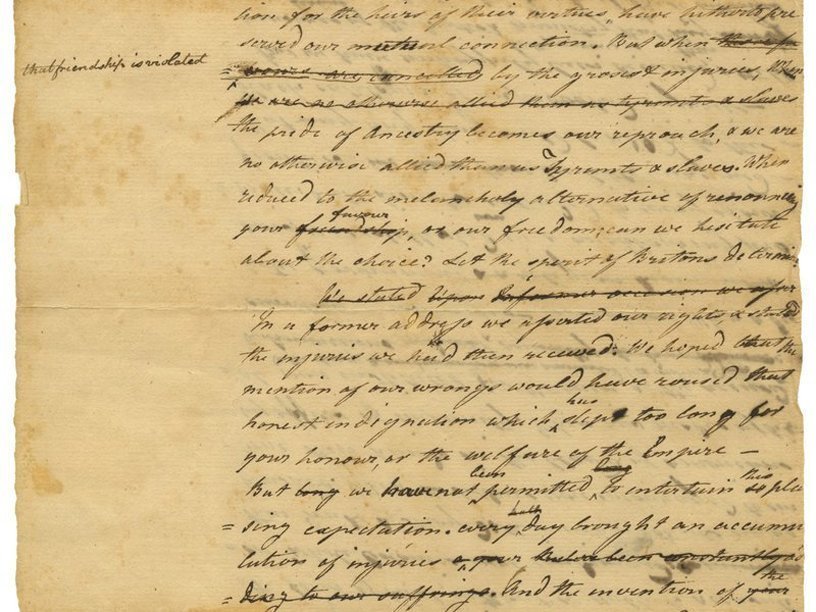 tion for the heirs of their virtues, have hitherto pre
served our mutual connection. But when
that friendship is violated
= are cancelled by the grossest injuries, when
we are no otherwise allied than as tyrants & slaves
the pride of Ancestry becomes our reproach, & we are
no otherwise allied than as Tyrants & slaves. When
reduced to the melancholy alternative of renouncing
favour
your friendship, or our freedom; can we hesitate
about the choice? Let the spirit of Britons determine.
We stated upon a former occasion we
In a former address we asserted our rights & stated
the injuries we had then received. We hoped that the
mention of our wrongs would have roused that
has
honest indignation which slept too long for
your honour, or the welfare of the Empire —
been long
But long we have not permitted to entertain this so plea
hath
= sing expectation. every day brought an accumu
lation of injuries & your have been constantly
= ding to our sufferings. And the invention of your
the